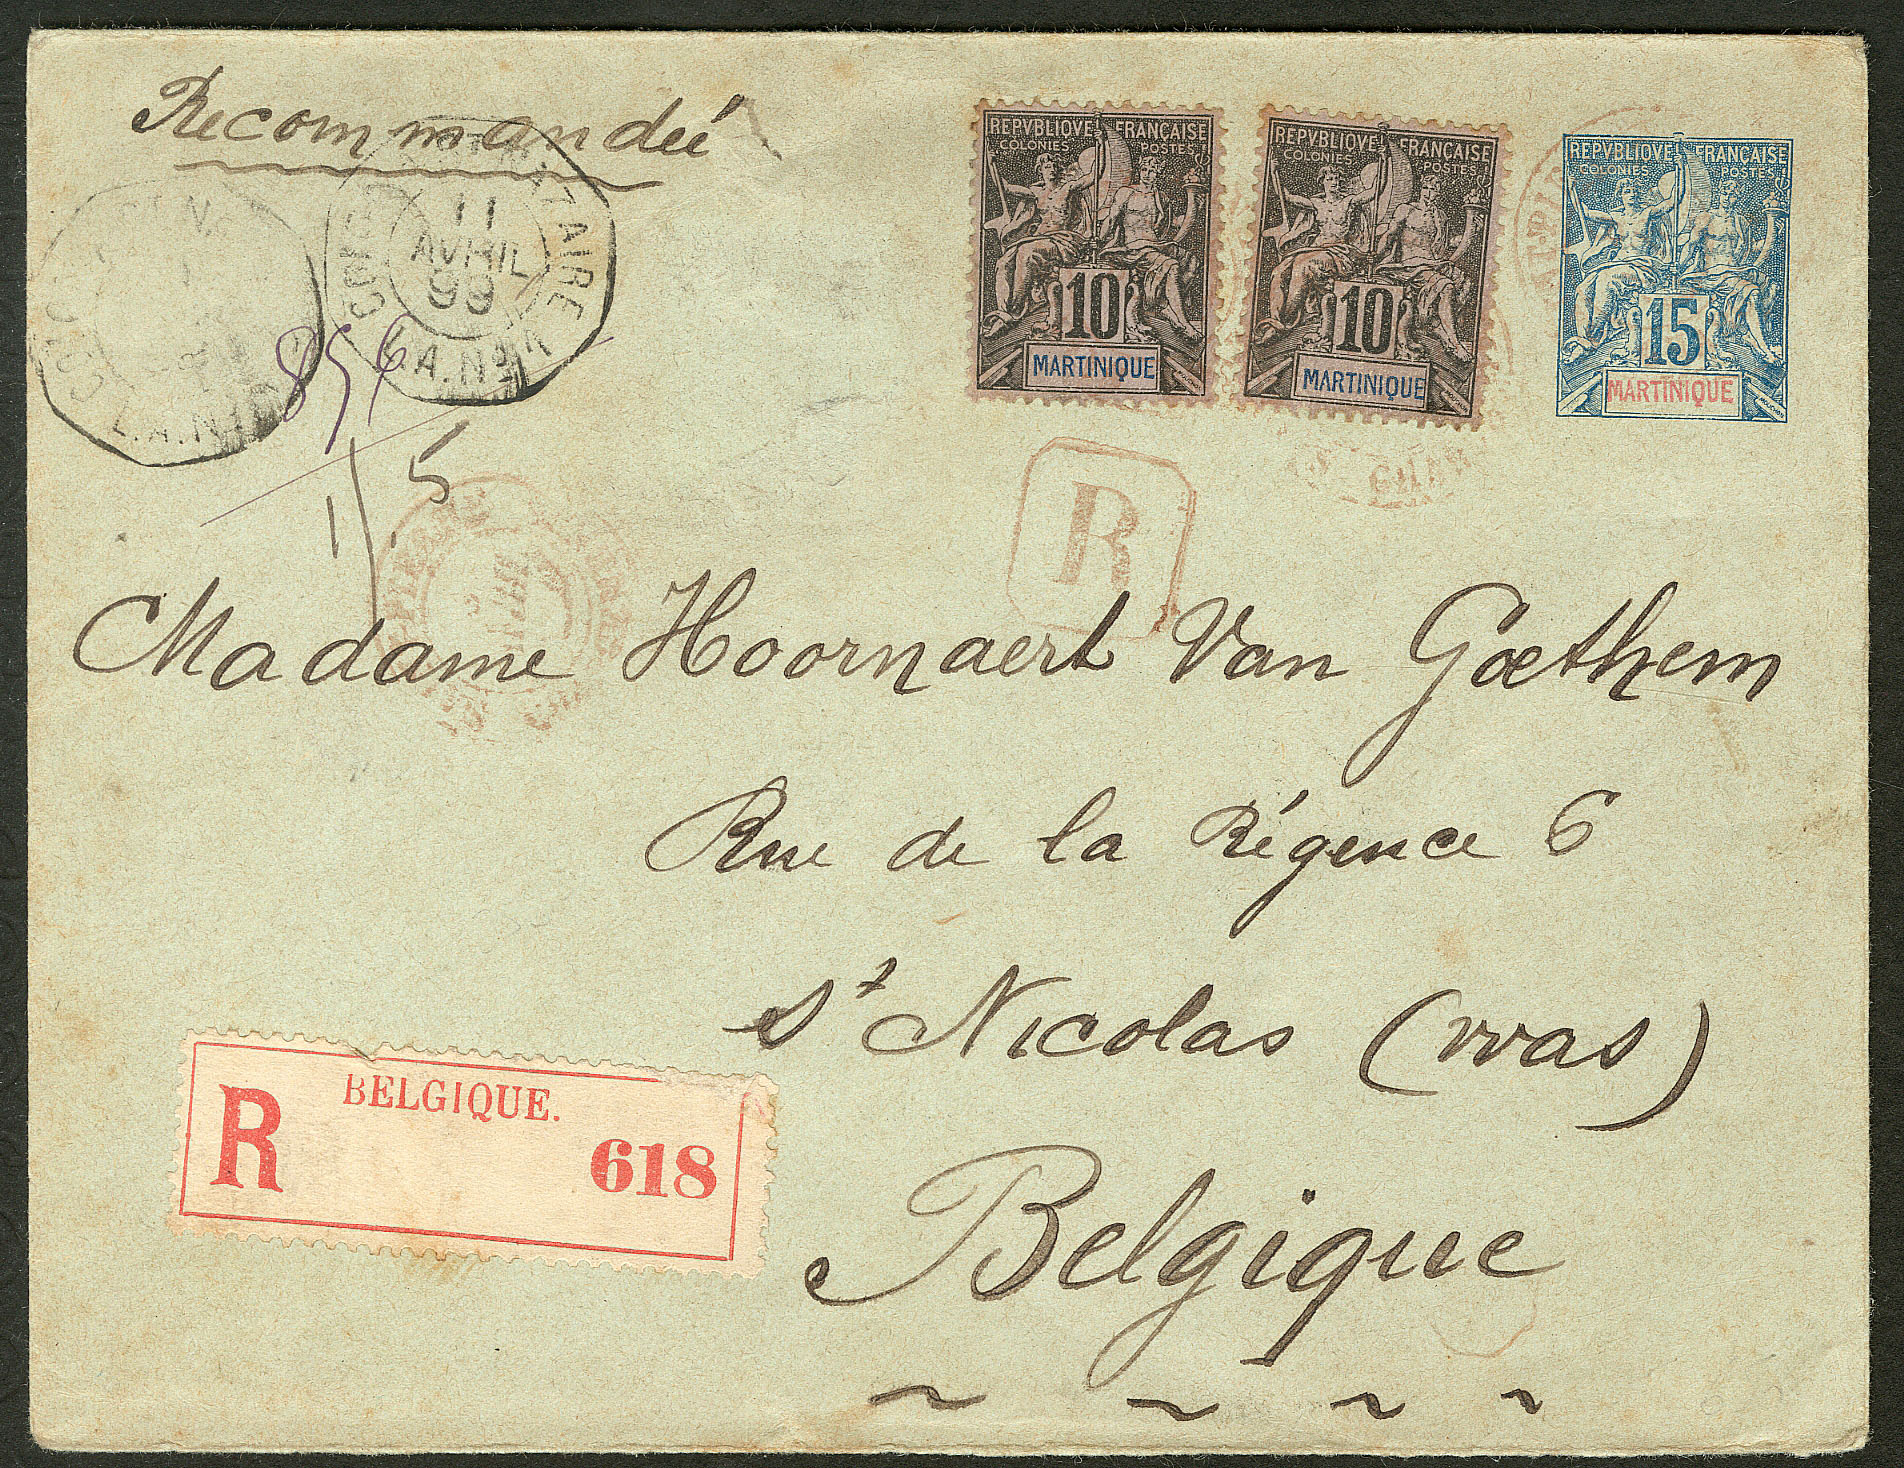 Recommandéé
REPVBLIQVE FRANÇAISE
COLONIES POSTES
10
MARTINIQUE
REPVBLIQVE FRANÇAISE
COLONIES POSTES
10
MARTINIQUE
REPVBLIQVE FRANÇAISE
COLONIES POSTES
15
MARTINIQUE
MOUCHON
11
AVRIL
99
L.A.N
L.A.N
856
15
R
Madame Hoornaert Van Gœthem
Rue de la Régence 6
St Nicolas (vvas)
Belgique
R BELGIQUE.
618